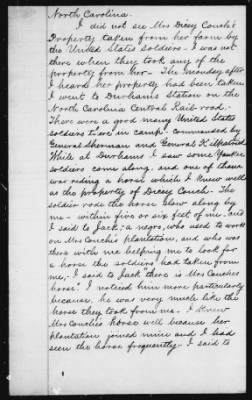 North Carolina.
I did not see Mrs Dicey Couch's
Property taken from her farm by
the United States soldiers - I was not
there when they took any of the
property from her - The Monday after
I heard her property had been taken
I went to Durham's Station on the
North Carolina Central Rail-road.
There were a good many United States
soldiers there in camp. commanded by
General Sherman and General Kilpatrick
While at Durhams I saw some Yankee
soldiers come along, and one of them
was riding a horse which I knew well
as the property of Dicey Couch - The
soldier rode the horse slow along by
me - within five or six feet of me, and
I said to Jack, a negro, who used to work
on Mrs Couchs plantation, and who was
there with me helping me to look for
a horse the soldiers had taken from
me, - I said to Jack "there is Mrs Couches
horse". I noticed him more particularly
because he was very much like the
horse they took from me. I knew
Mrs Couches horse well because her
plantation joined mine and I had
seen the horse frequently - I said to